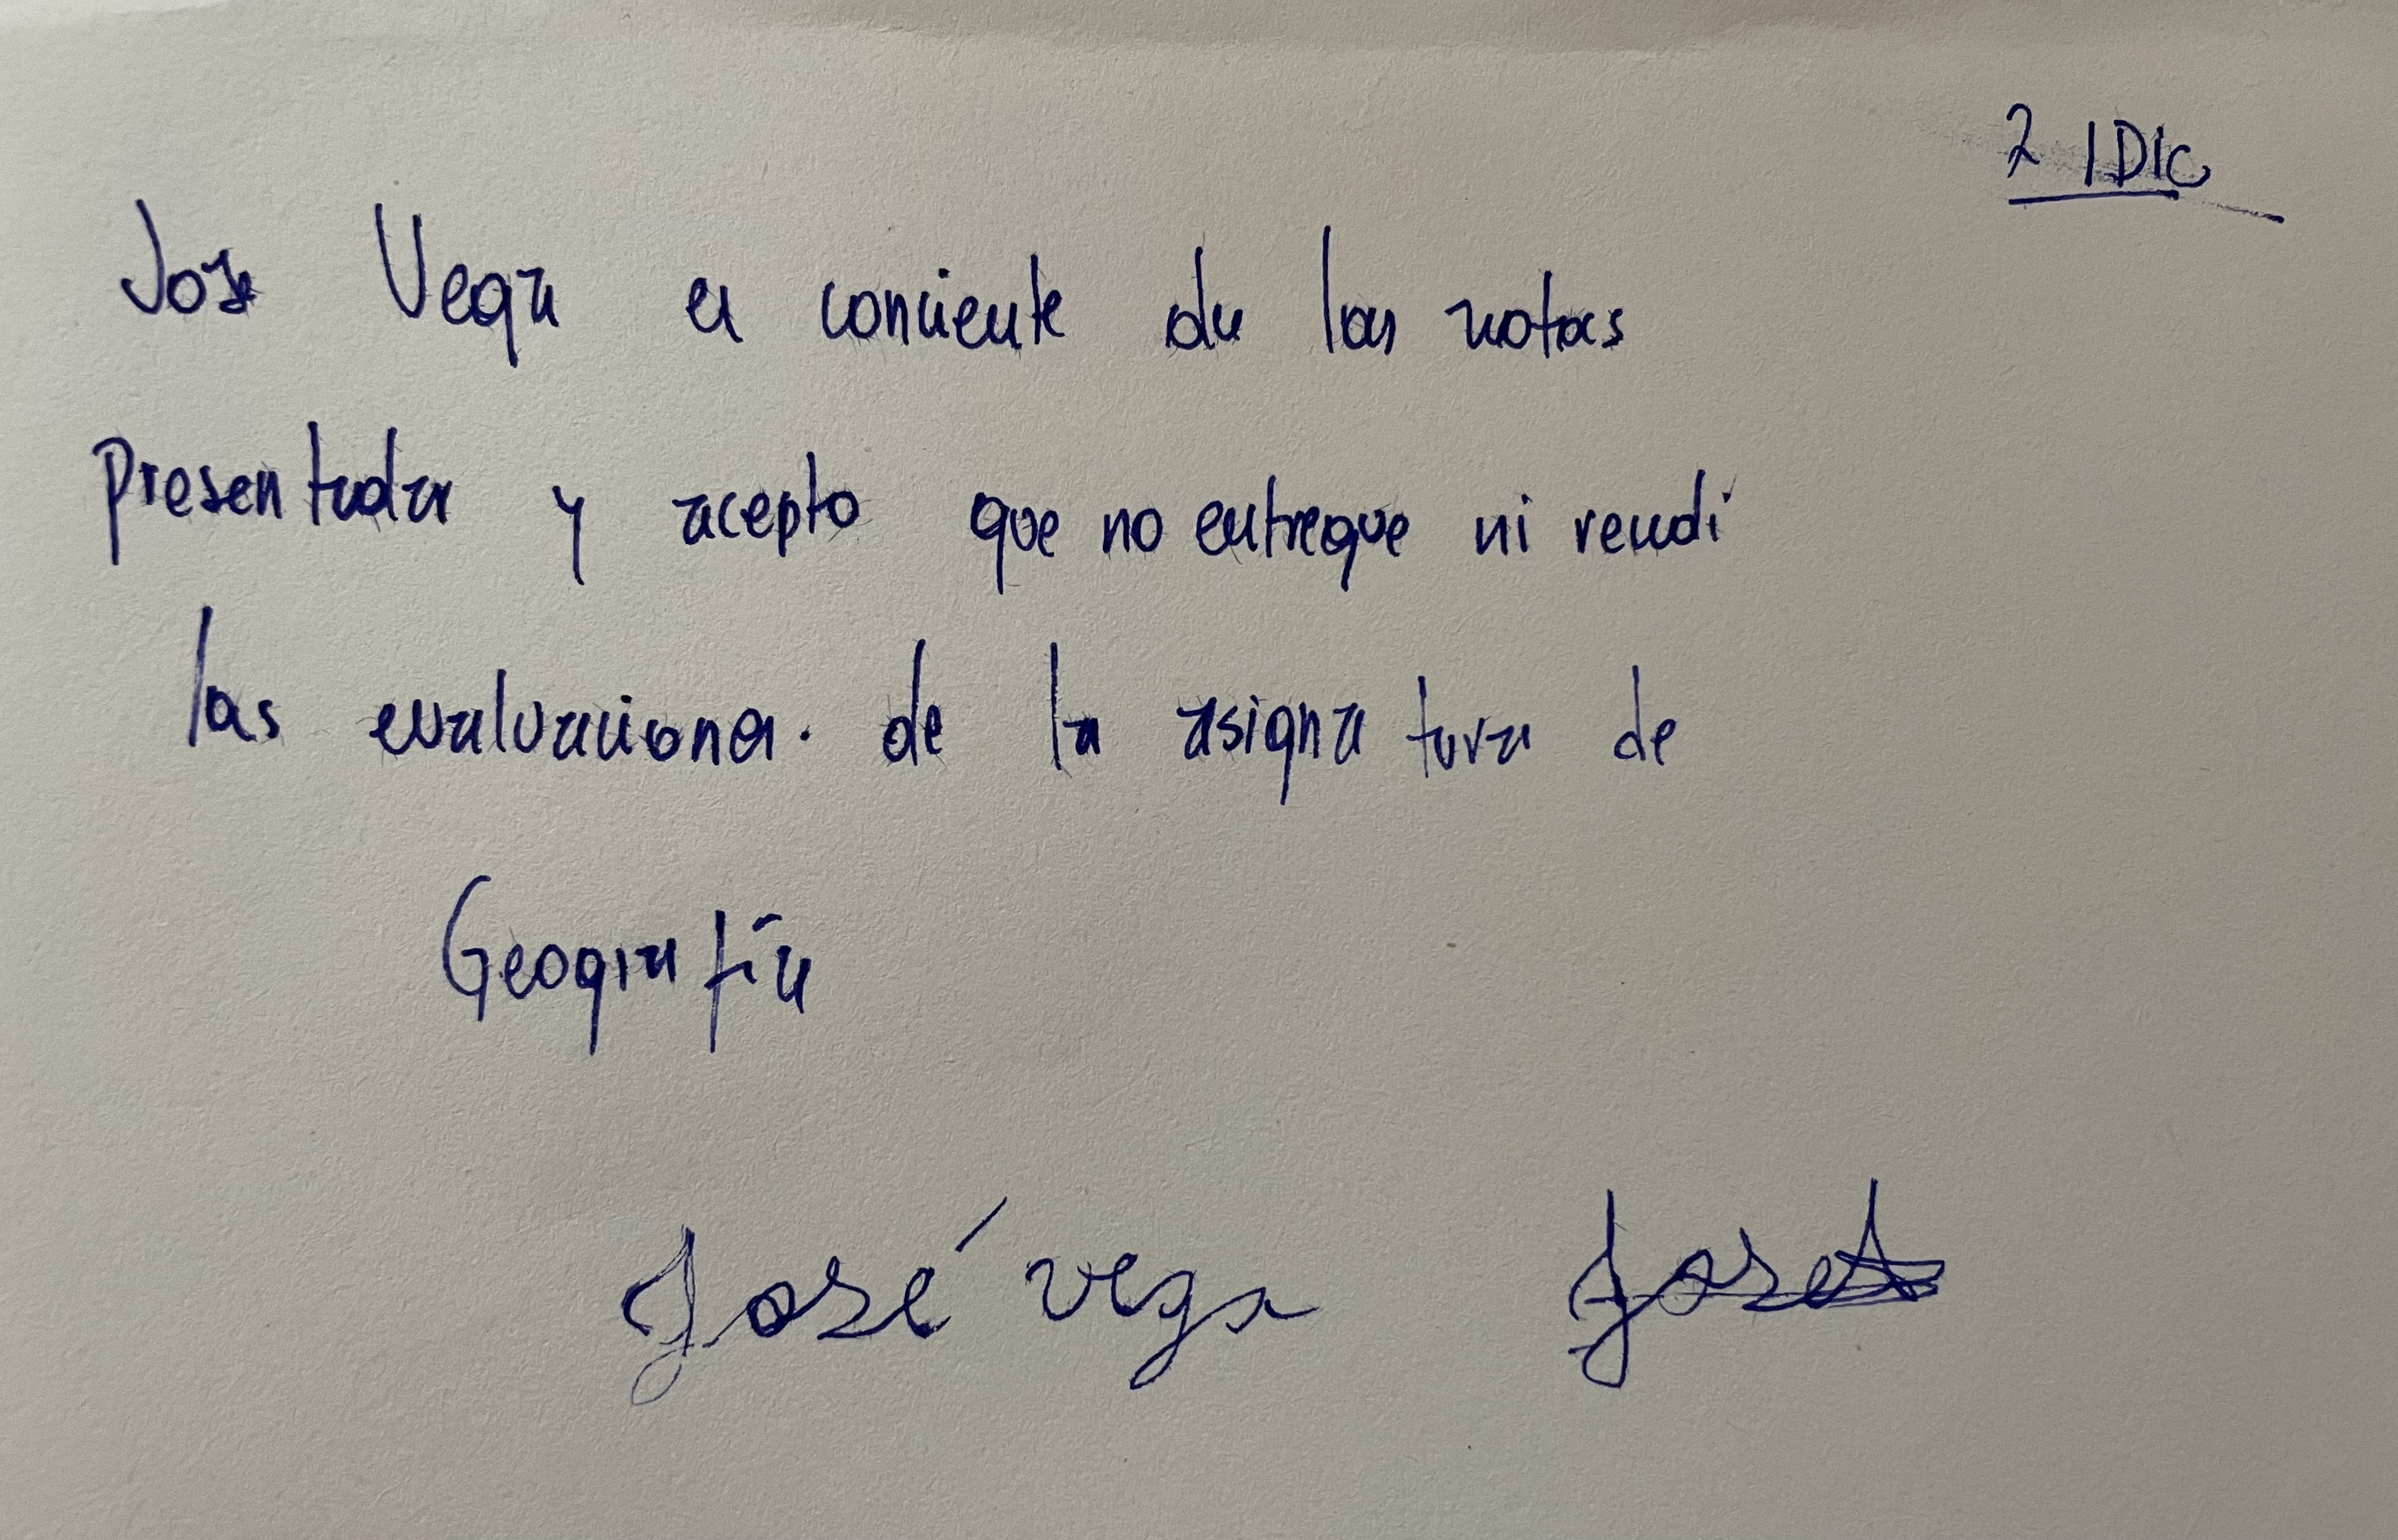 2 / DIC
Jose Vega es conciente de las notas
presentadas y acepto que no entregue ni rendi
las evaluaciones. de la asignatura de
Geografía
José vega Jose